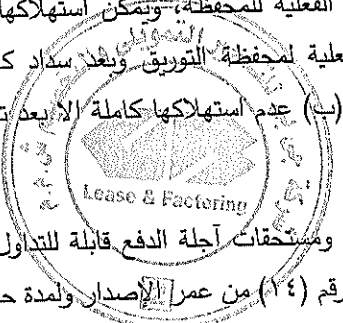 الفعلية للمحفظة، ويمكن استهلاكها
علية لمحفظة التوريق وبعد سداد ك
(ب) عدم استهلاكها كاملة الا بعد ت
Lease & Factoring
ومستحقات آجلة الدفع قابلة للتداول
رقم (١٤) من عمر الإصدار ولمدة ح